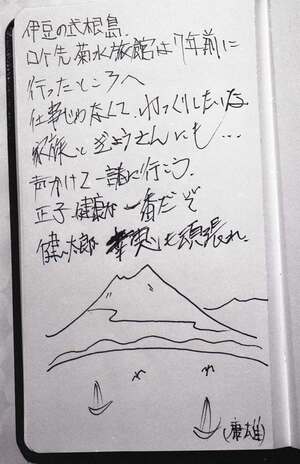 伊豆の式根島
ロケ先 菊水旅館は7年前に
行ったところへ
仕事じゃなくて、ゆっくりしたいな
家族とぎょうさんにも…
声かけて一諸に行こう。
正子 健康が一番だぞ
健太郎 も頑張れ
(康雄)